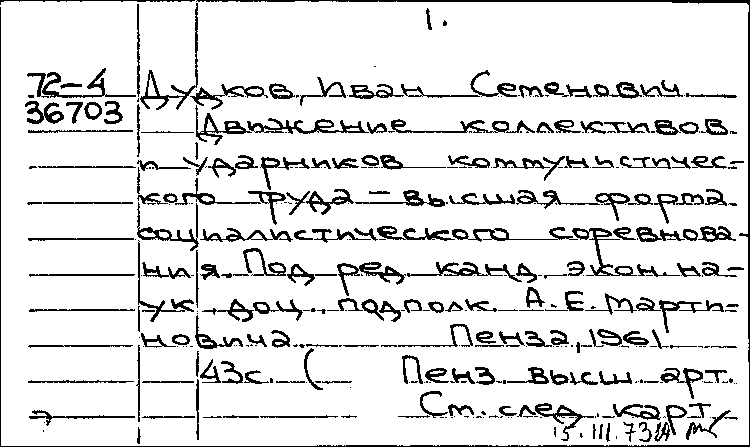 1.
72-4 Дудков, Иван Семенович.
36703 Движение коллективов
и ударников коммунистичес-
кого труда – высшая форма
социалистического соревнова-
ния. Под ред. канд. экон. на-
ук, доц., подполк. А. Е. Марти-
новича. Пенза, 1961.
43с. ( Пенз. высш. арт.
См. след. карт.
15.III.73